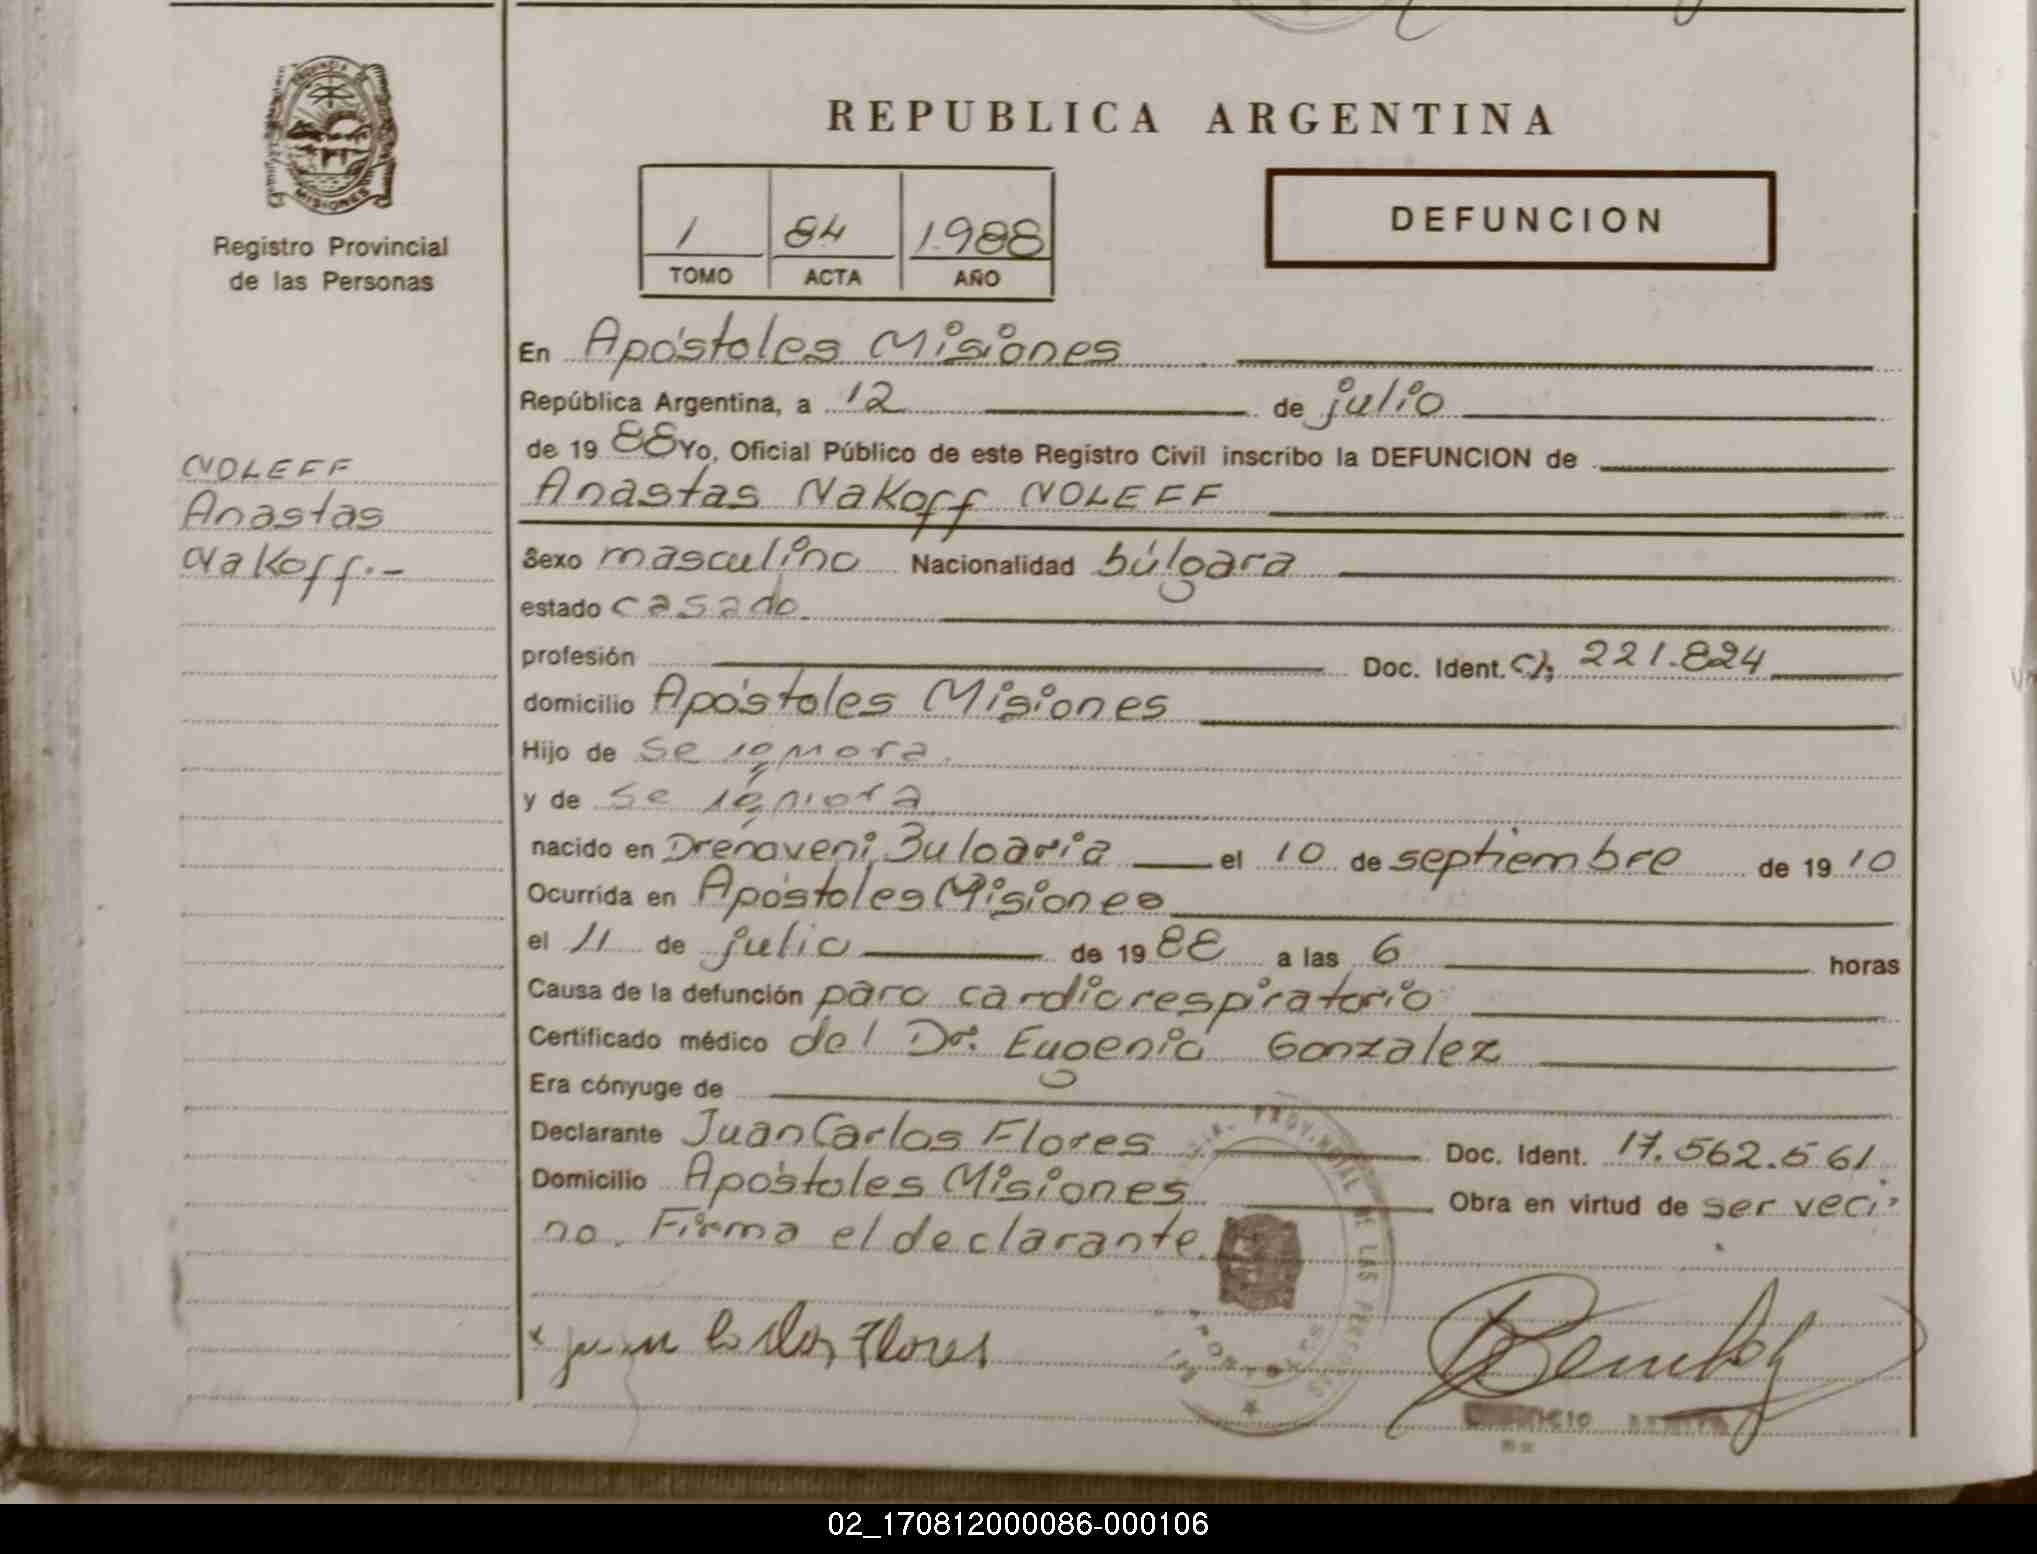 PROVINCIA DE
MISIONES
Registro Provincial
de las Personas
REPUBLICA ARGENTINA
1 84 1988
TOMO ACTA AÑO
DEFUNCION
En Apóstoles Misiones
República Argentina, a 12 de julio
de 19 88 Yo, Oficial Público de este Registro Civil inscribo la DEFUNCION de
Anastas Nakoff NOLEFF
NOLEFF
Anastas
Nakoff.-
Sexo masculino Nacionalidad búlgara
estado casado
profesión Doc. Ident. C.I. 221.824
domicilio Apóstoles Misiones
Hijo de se ignora.
y de se ignora
nacido en Drenoveni, Bulgaria el 10 de septiembre de 19 10
Ocurrida en Apóstoles Misiones
el 11 de julio de 19 88 a las 6 horas
Causa de la defunción paro cardiorespiratorio
Certificado médico del Dr. Eugenio Gonzalez
Era cónyuge de
Declarante Juan Carlos Flores Doc. Ident. 17.562.561.
Domicilio Apóstoles Misiones Obra en virtud de ser veci-
no. Firma el declarante.
x Juan Carlos Flores
02_170812000086-000106